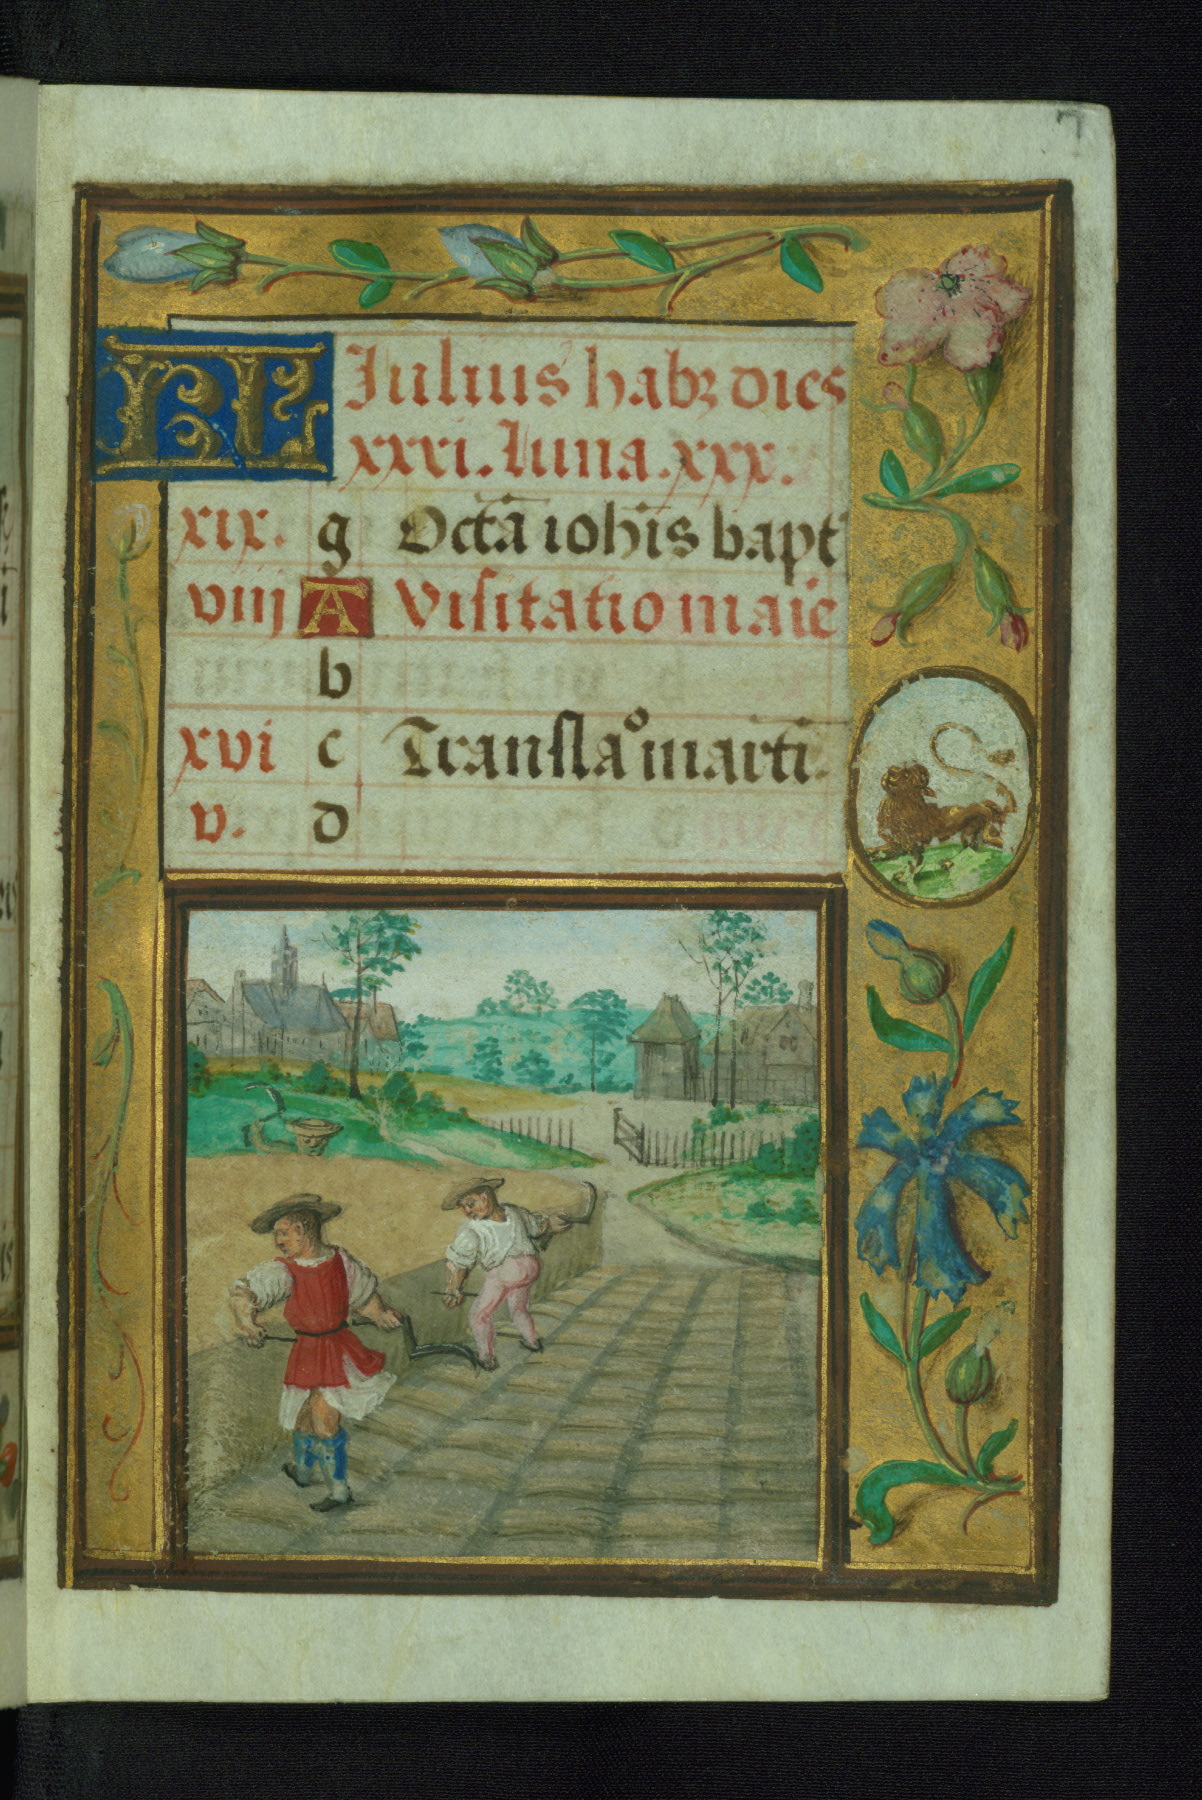 7
KL Iulius habꝫ dies
xxxi. luna. xxx.
xix. g Octā ioh̄is bapt
viiij A Visitatio maie
b
xvi c Transla° marti.
v. d